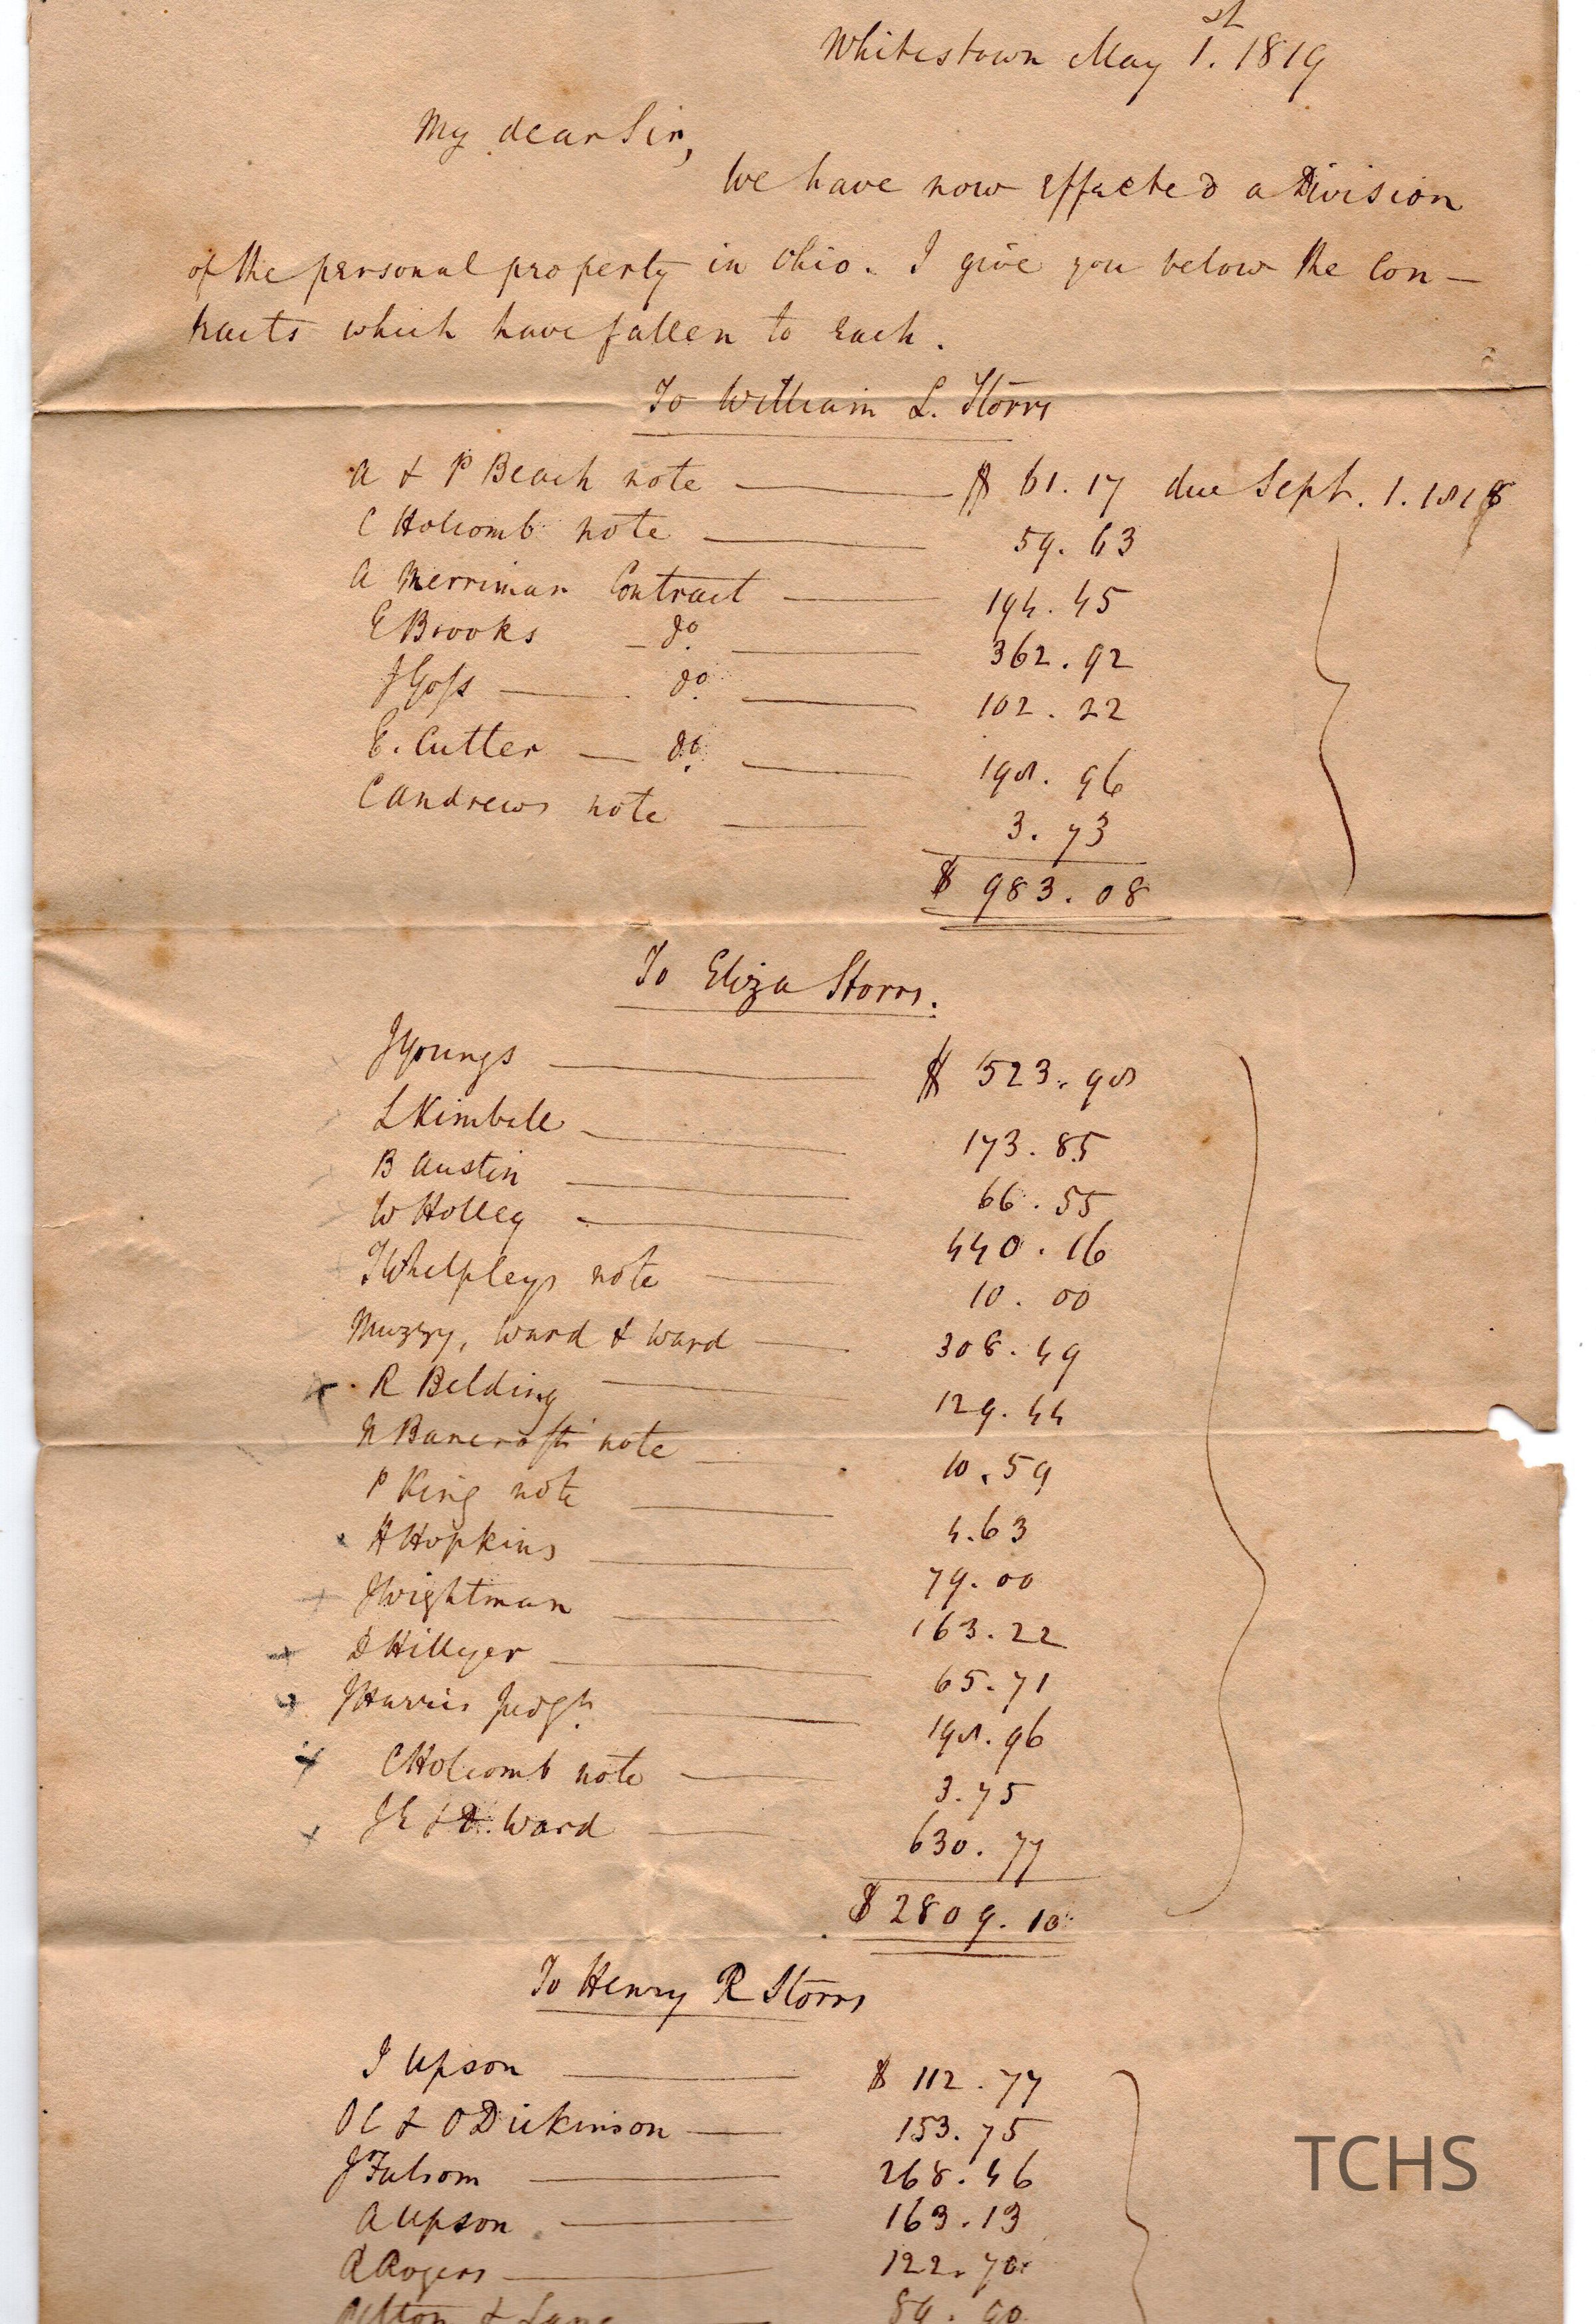 Whitestown May 1.st 1819
My dear Sir,
We have now effected a Division
of the personal property in Ohio. I give you below the Con-
tracts which have fallen to Each.
To William L. Storrs
A & P Beach note $ 61.17 due Sept. 1. 1818
C Holcomb note 59.63
A Merriman Contract 194.45
E Brooks do. 362.92
J Goss do. 102.22
E. Cutter do. 198.96
C Andrews note 3.73
$ 983.08
To Eliza Storrs.
J Youngs $ 523.98
L Kimball 173.85
B Austin 66.55
W Holley 440.16
J Whelpleys note 10.00
Muzzy, Ward & Ward 308.49
R Belding 129.44
N Bancrofts note 10.59
P King note 4.63
H Hopkins 79.00
J Wightman 163.22
D Hillyer 65.71
J Harris Judgt. 198.96
C Holcomb note 3.75
J E & D. Ward 630.77
$ 2809.10
To Henry R Storrs
I Upson $ 112.77
O C & O Dickinson 153.75
J Fulsom 268.46
A Upson 163.13
R Rogers 122.70
& Lane 89.90
TCHS